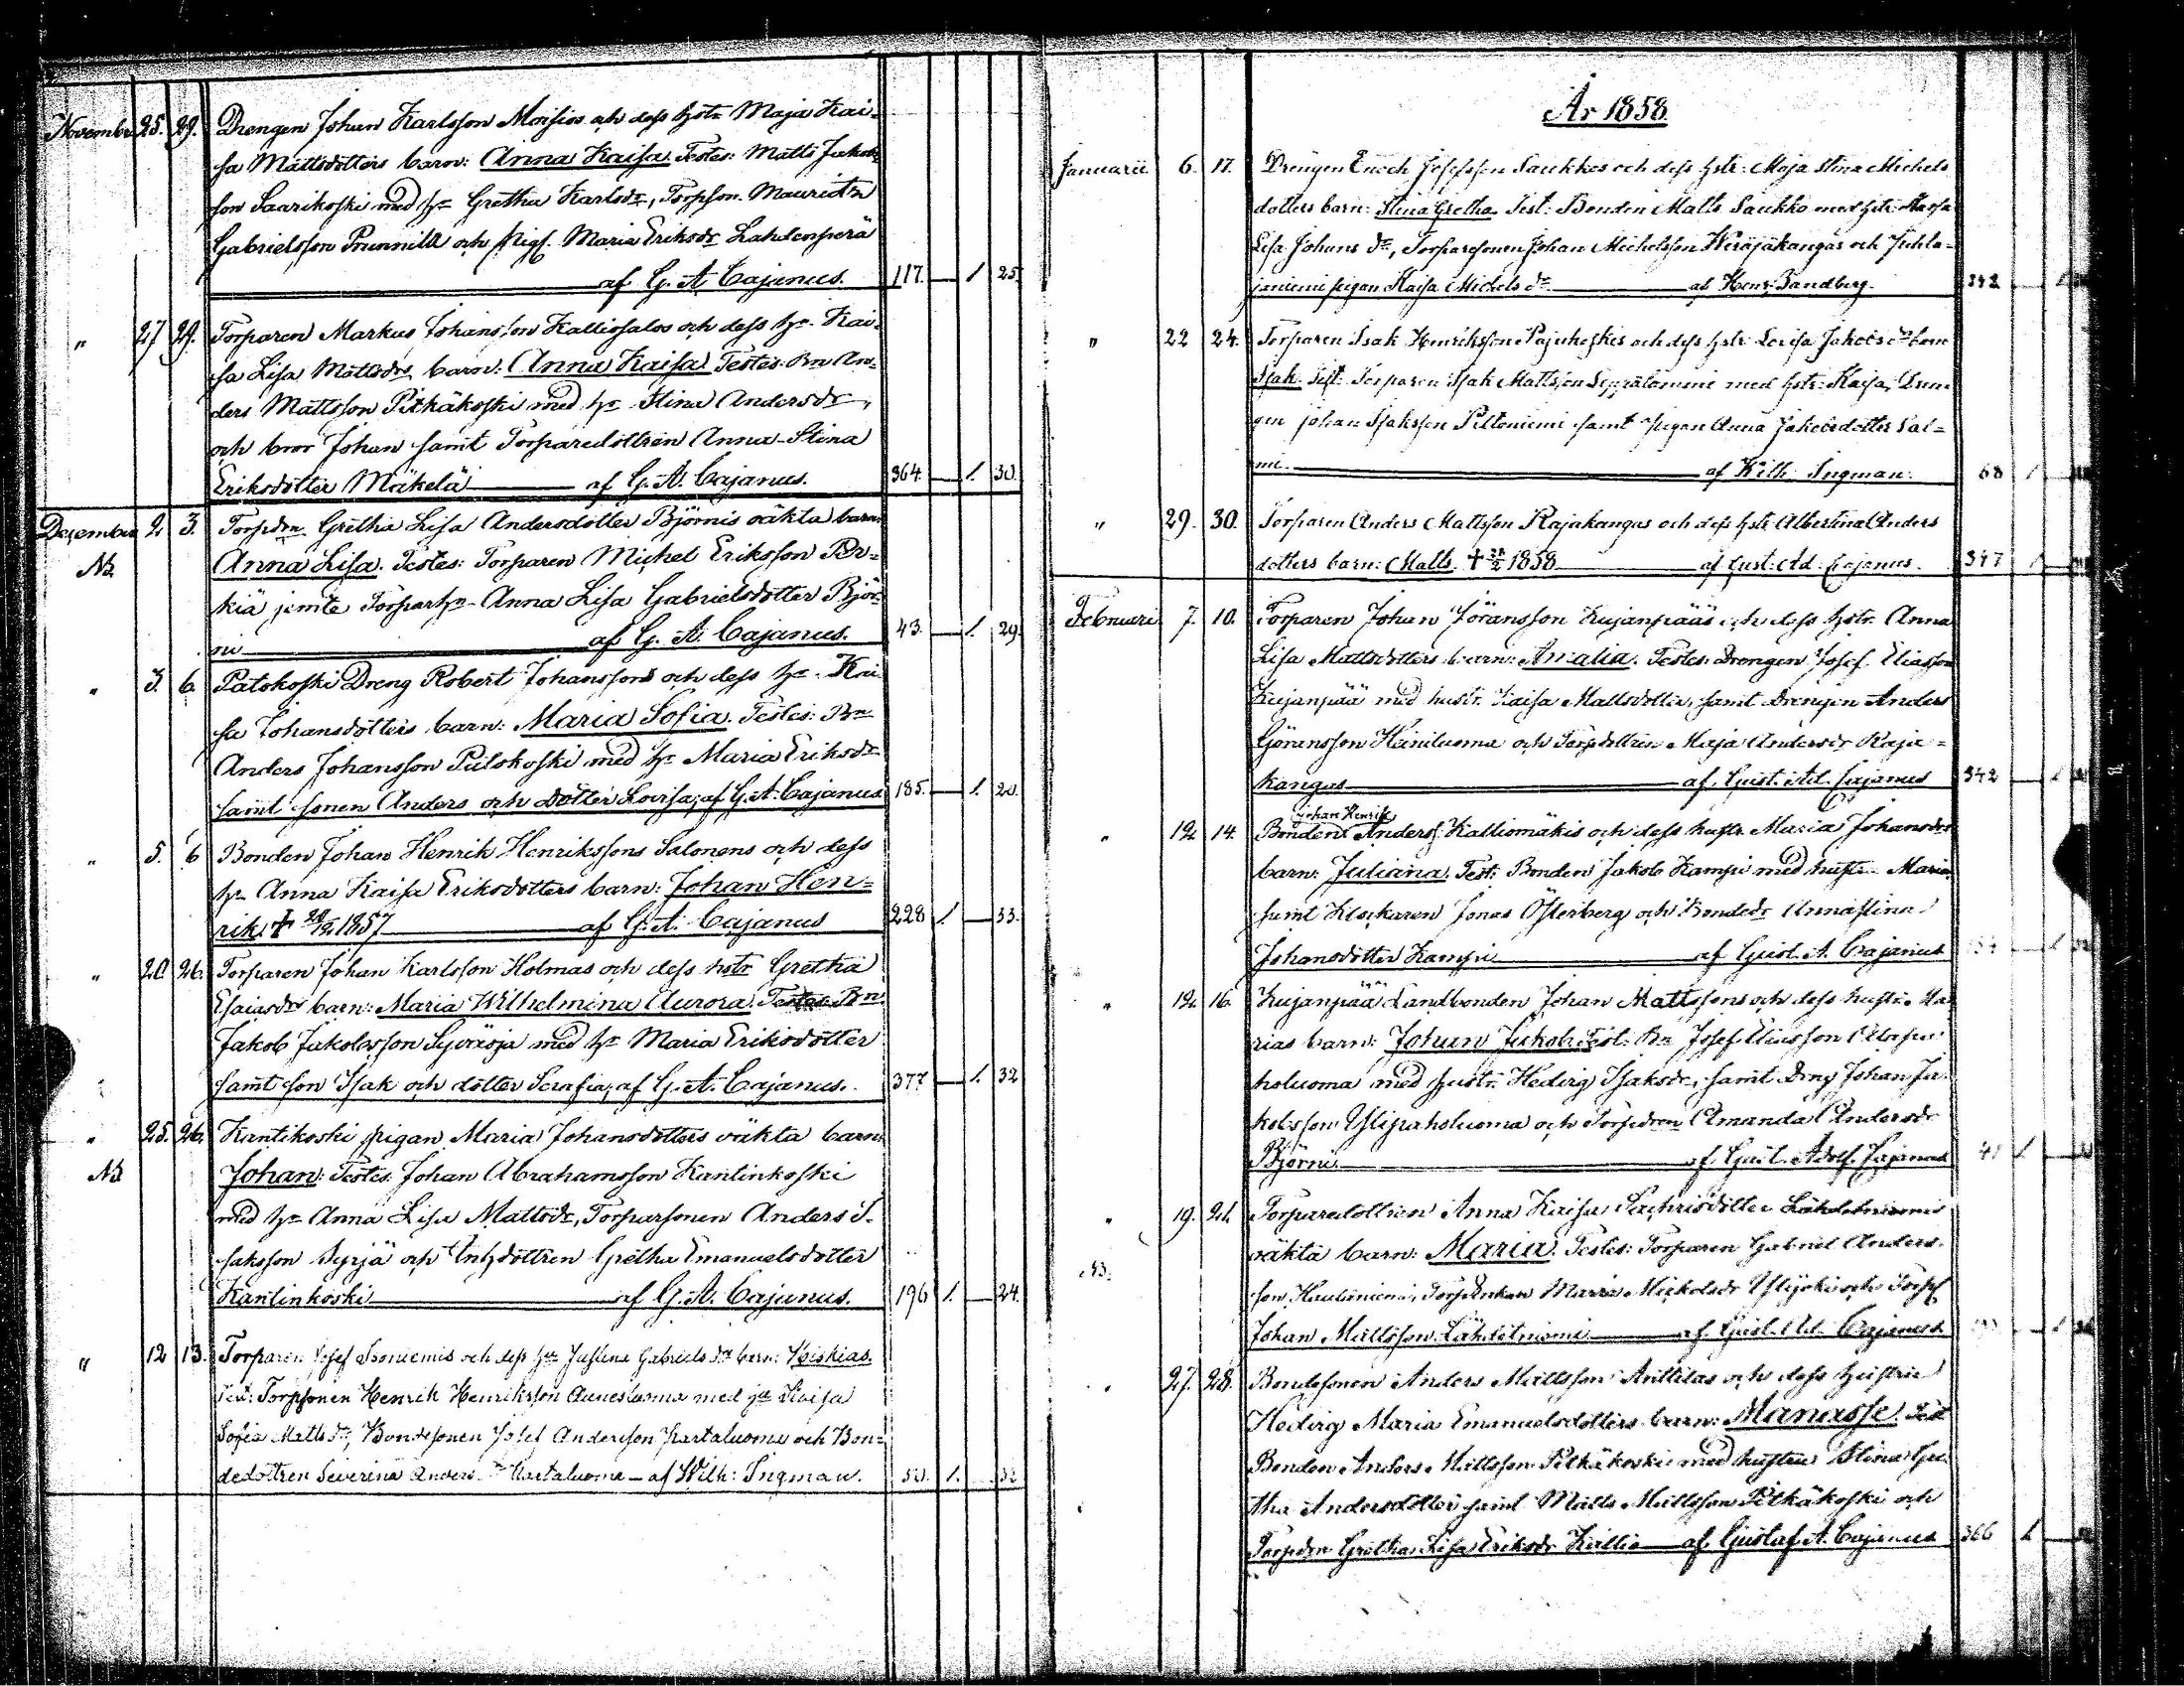 November 25. 29. Drengen Johan Karlsson Moisios och dess hstr Maja Kai-
sa Mattsdotters barn: Anna Kaisa. Testes: Matts Jakobs
son Saarikoski med hu Gretha Karlsdr, Torpson. Mauritz
Gabrielsson Prunnila och pig. Maria Eriksdr Lahdenperä
af G. A. Cajanus. 117. — 1 25.
" 27 29. Torparen Markus Johansson Kalliosalos och dess hu. Kai-
sa Lisa Mattsdrs barn: Anna Kaisa Testes. Bn An-
ders Mattsson Pitkäkoski med hu Stina Andersdr,
och bror Johan samt Torparedottren Anna Stina
Eriksdotter Mäkelä — af G. A. Cajanus. 364. — 1. 30.
December 2. 3. Torpdrn Gretha Lisa Andersdotter Björnis oäkta barn
Nb. Anna Lisa. Testes: Torparen Michel Eriksson Per-
kiä jemte Torparhu Anna Lisa Gabrielsdotter Björ-
ni — af G. A. Cajanus. 43. — 1. 29.
" 3. 6. Patokoski Dreng Robert Johanssons och dess hu. Kai-
sa Johansdotters barn: Maria Sofia. Testes: Bn
Anders Johansson Patokoski med hu Maria Eriksdr
samt sonen Anders och dotter Lovisa; af G. A. Cajanus 185. — 1. 20.
" 5. 6 Bonden Johan Henrik Henrikssons Salonens och dess
hu Anna Kaisa Eriksdotters barn: Johan Hen-
rik. + 29/12 1857 — af G. A. Cajanus 228 1 — 33.
" 20. 26. Torparen Johan Karlsson Holmas och dess hstr Gretha
Esaiasdrs barn: Maria Wilhelmina Aurora. Testes Bn
Jakob Jakobsson Syväoja med hu Maria Eriksdotter
samt son Isak och dotter Serafia; af G. A. Cajanus. 377 — 1. 32
" 25. 26. Kantikoski pigan Maria Johansdotters oäkta barn
Nb Johan: Testes: Johan Abrahamsson Kantinkoski
med hu Anna Lisa Mattsdr, Torparsonen Anders I-
saksson Syrjä och Inhdottren Gretha Emanuelsdotter
Kantinkoski — af G. A. Cajanus. 196 1. — 24.
" 12 13. Torparen Josef Isoniemis och dess hu Justina Gabriels dr barn: Hiskias.
Test: Torpsonen Henrik Henriksson Annesluoma med hu Kaisa
Sofia Matts dr, Bondesonen Josef Andersson Kartaluoma och Bon-
dedottren Severina Anders dr Kartaluoma — af Wilh: Ingman. 1. 32
År 1858.
Januarii 6. 17. Drengen Enoch Josefsson Saukkos och dess hstr: Maja Stina Michels
dotters barn: Stina Gretha. Test: Bonden Matts Saukko med hstr:
Lisa Johans dr, Torparesonen Johan Michelsson Wiräjäkangas och Juhla-
janiemi pigan Kaisa Michels dr — af Henr: Sandberg. 342
" 22 24. Torparen Isak Henriksson Pajukoskis och dess hstr Lovisa Jakobs drs barn
Isak. Test: Torparen Isak Mattsson Seppälanmini med hstr: Kaisa, Dren-
gen Johan Isaksson Piltoniemi samt pigan Anna Jakobsdotter Sal-
mi. — af Wilh: Ingman. 68 1
" 29. 30. Torparen Anders Mattsson Rajakangas och dess hstr Albertina Anders
dotters barn: Matts. + 1858 — af Gust: Ad: Cajanus. 347 1
Februari 7. 10. Torparen Johan Jöransson Kujanpääs och dess hstr. Anna
Lisa Mattsdotters barn: Amalia. Testes: Drengen Josef Eliasson
Kujanpää med hustr. Kaisa Mattsdotter, samt Drengen Anders
Göransson Heiniluoma och Torpdottren Maja Andersdr Raja-
kangas — af Gust. Ad. Cajanus 342
Johan Henriks
" 12. 14. Bonden Anders Kalliomäkis och dess hustr Maria Johansdrs
barn: Juliana. Test: Bonden Jakob Kampi med hustr Maria
samt Klockaren Jonas Österberg och Bondedr Annastina
Johansdotter Kampi — af Gust. A. Cajanus
" 12. 16. Kujanpää Landbonden Johan Mattssons och dess hustr. Ma-
rias barn: Johan Jakob. Test: Bn Josef Eliasson
holuoma med hustr. Hedvig Isaksdr, samt Dreng Johan Ja-
kobsson Ylipaholuoma och Torpdren Amanda Andersdr
Björni — af Gust. Adolf. Cajanus 41 1
" 19. 21. Torparedottren Anna Kaisa Zachrisdotter Lähdetniemis
NB. oäkta barn: Maria. Testes: Torparen Gabriel Anders-
son Hautaniemi, Torpenkan Maria Mickelsdr Ylijoki och Torps
Johan Mattsson Lähdetniemi — af Gust. Ad. Cajanus
" 27. 28. Bondesonen Anders Mattsson Anttilas och dess hustru
Hedvig Maria Emanuelsdotters barn: Manasse. Test
Bonden Anders Mattsson Pitkäkoski med hustru Stina Gre-
tha Andersdotter samt Matts Mattsson Pitkäkoski och
Torpdrn Gretha Lisa Eriksdr Kallio — af Gustaf A. Cajanus 366 1